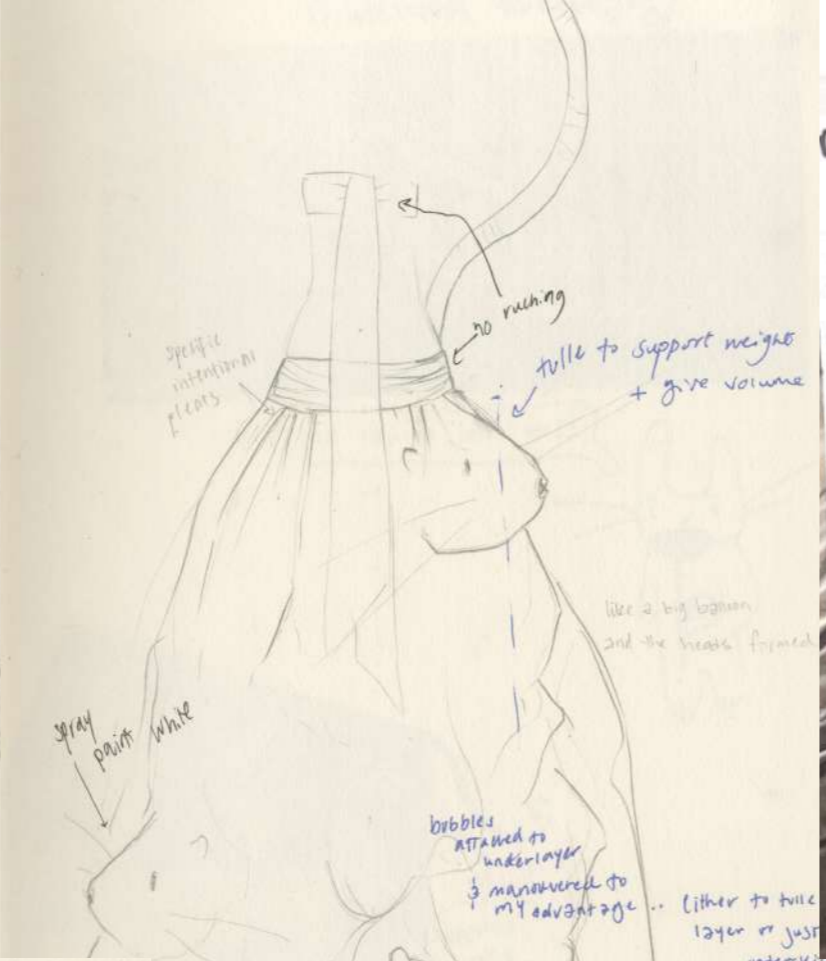 no ruching
specific
intentional
pleats
tulle to support weight
+ give volume
like a big balloon
and the heads formed
spray
paint white
bubbles
attached to
underlayer
& manouvered to
my advantage .. either to tulle
layer or just